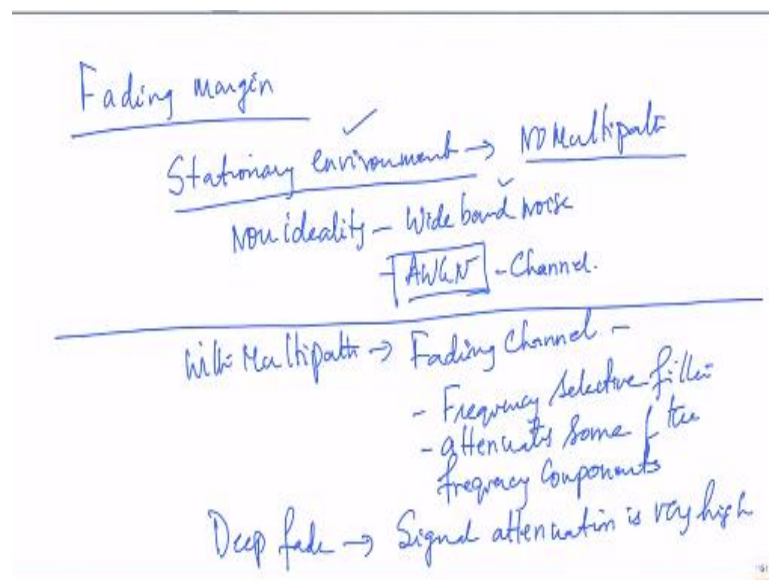 Fading margin
Stationary environment → No Multipath
Non ideality - Wide band noise
- AWGN - Channel.
With Multipath → Fading Channel -
- Frequency selective filter
- attenuates some of the
frequency components
Deep fade → Signal attenuation is very high